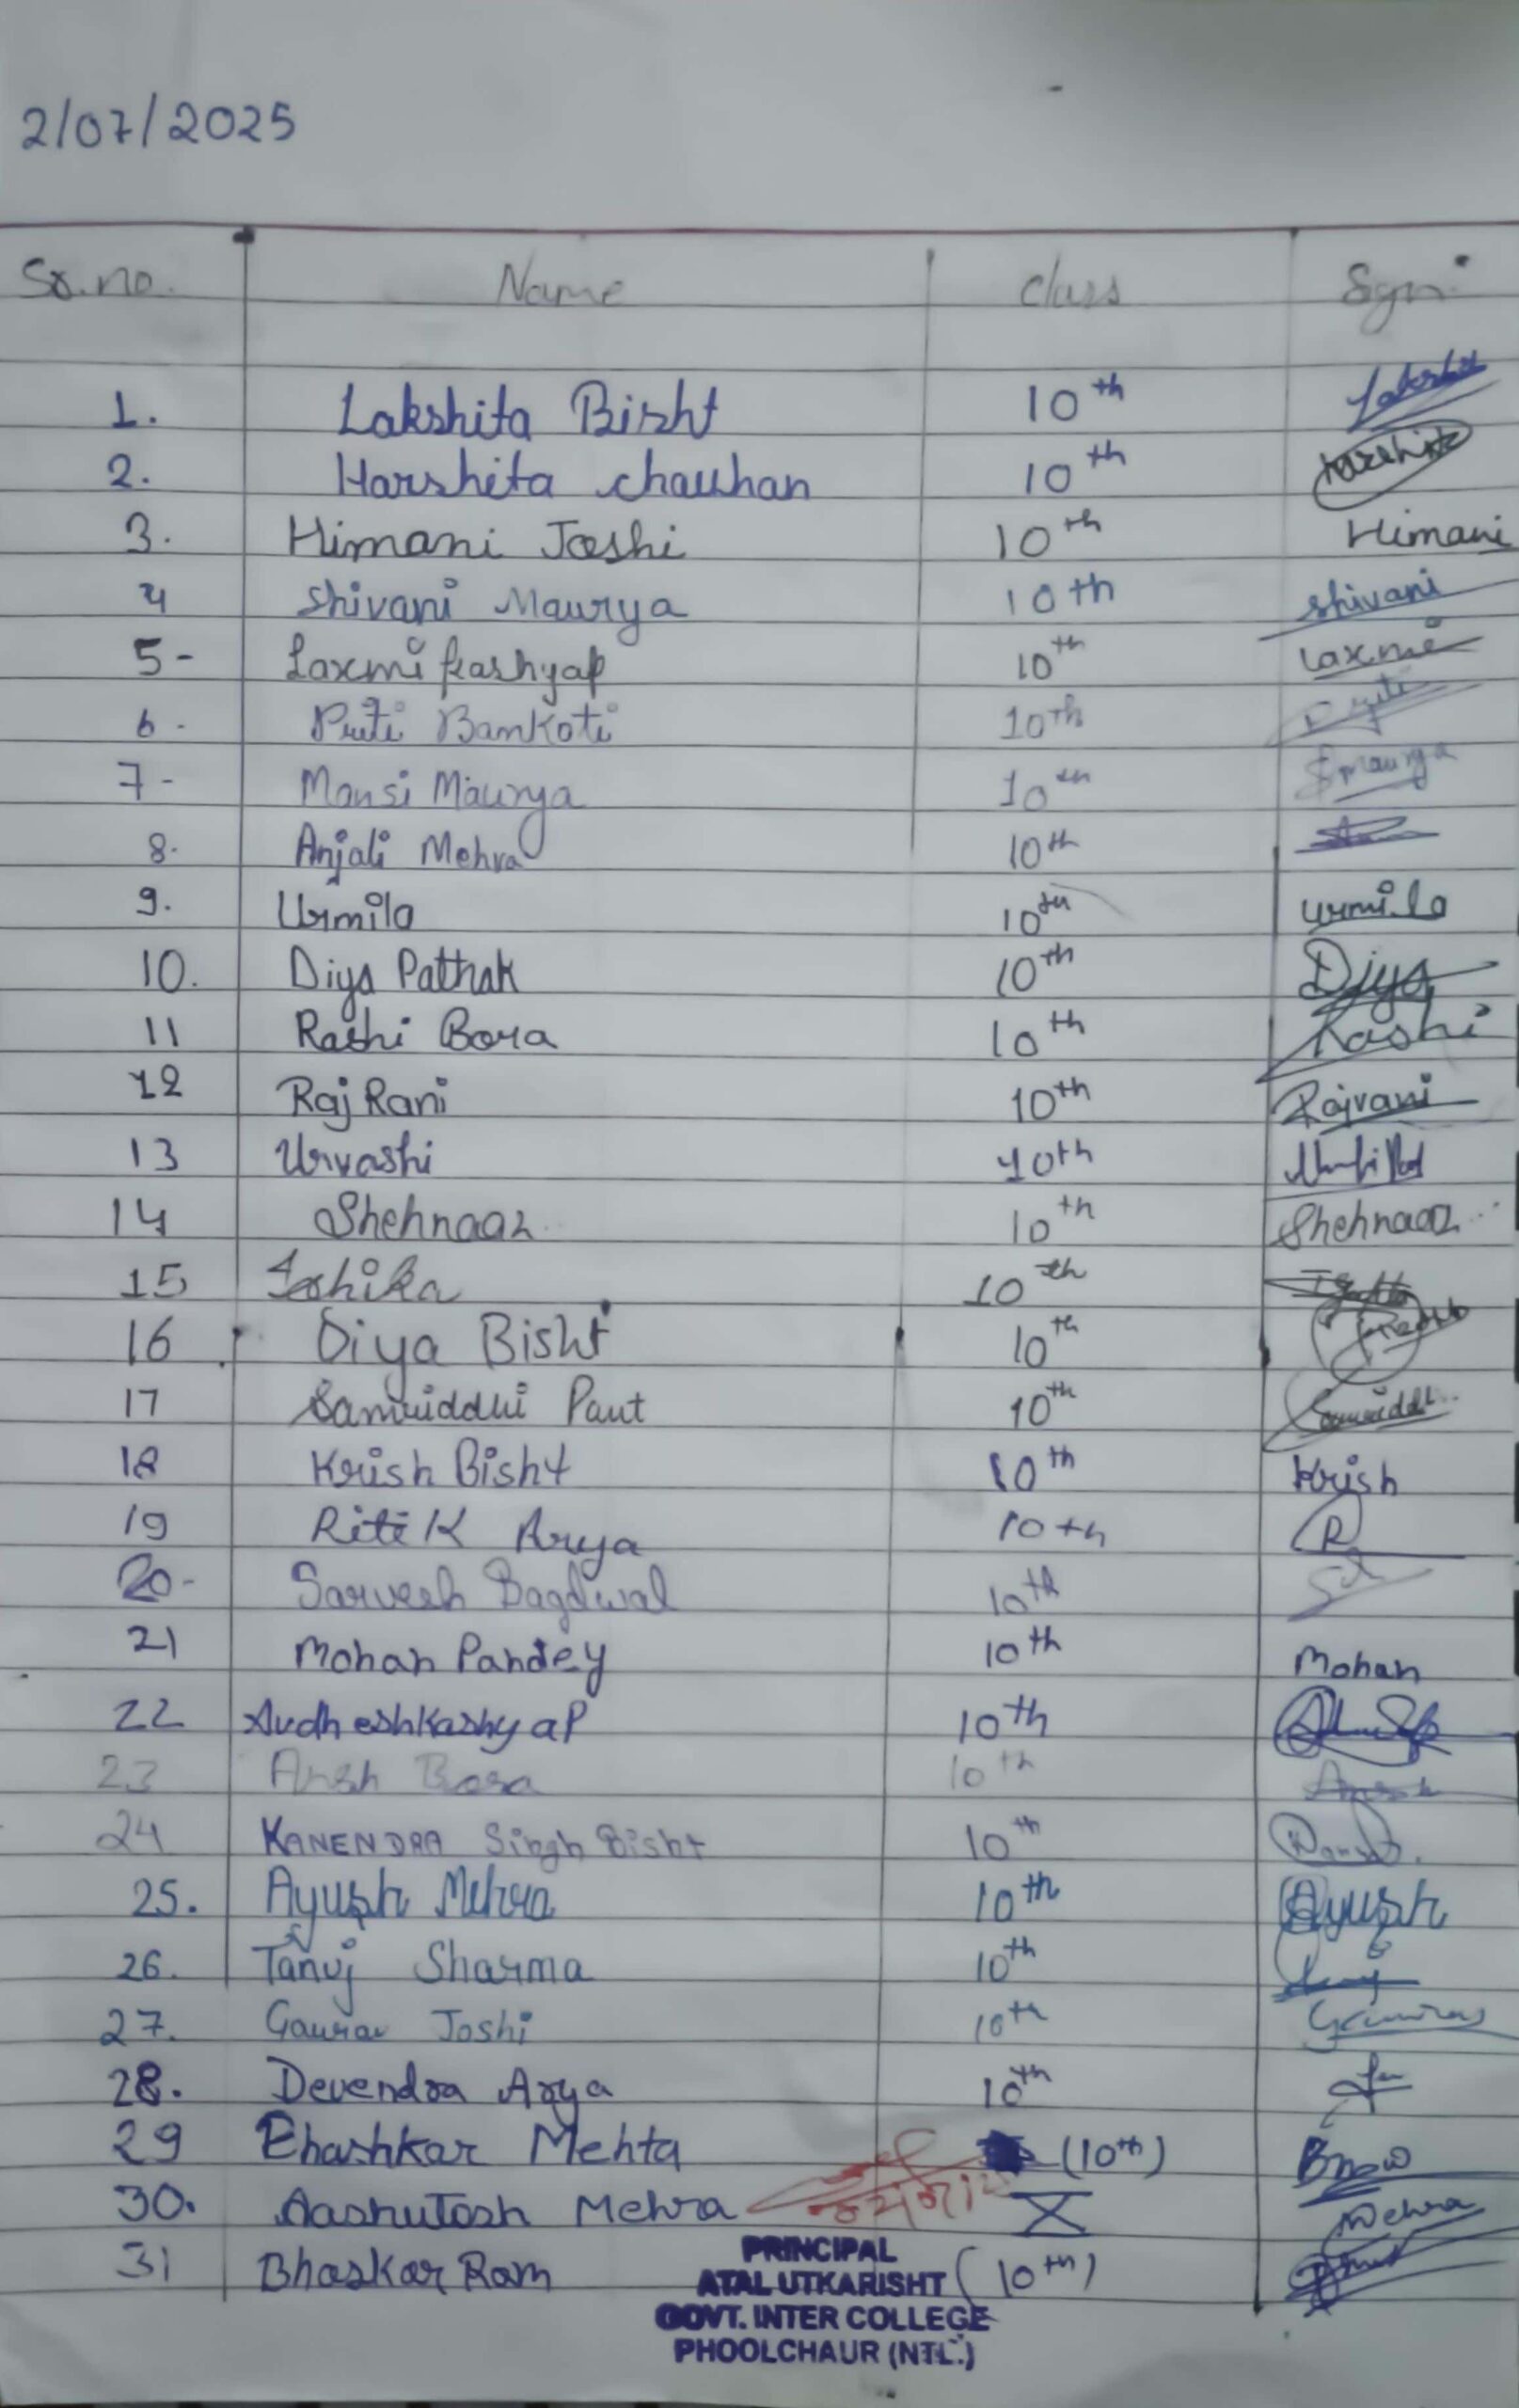 2/07/2025
Sr.no. Name Class Sgn.
1. Lakshita Bisht 10th
2. Harshita chauhan 10th Harshita
3. Himani Joshi 10th Himani
4 Shivani Maurya 10th Shivani
5- Laxmi kashyap 10th Laxmi
6. Priti Bankoti 10th
7- Mansi Maurya 10th Maurya
8. Anjali Mehra 10th
9. Urmila 10th Urmila
10. Diya Pathak 10th Diya
11 Rashi Bora 10th Rashi
12 Raj Rani 10th Rajrani
13 Urvashi 10th
14 Shehnaaz 10th Shehnaaz
15 Ishika 10th
16 Diya Bisht 10th
17 Samriddhi Pant 10th Samriddhi
18 Krish Bisht 10th Krish
19 Ritik Arya 10th R
20- Sarvesh Bagdwal 10th
21 Mohan Pandey 10th Mohan
22 Avdhesh Kashyap 10th
23 Ansh Bora 10th Ansh
24 KANENDRA Singh Bisht 10th
25. Ayush Mehra 10th Ayush
26. Tanuj Sharma 10th
27. Gaurav Joshi 10th Gaurav
28. Devendra Arya 10th
29 Bhashkar Mehta (10th)
30. Aashutosh Mehra X Mehra
31 Bhaskar Ram (10th)
PRINCIPAL
ATAL UTKARISHT
GOVT. INTER COLLEGE
PHOOLCHAUR (NTL.)